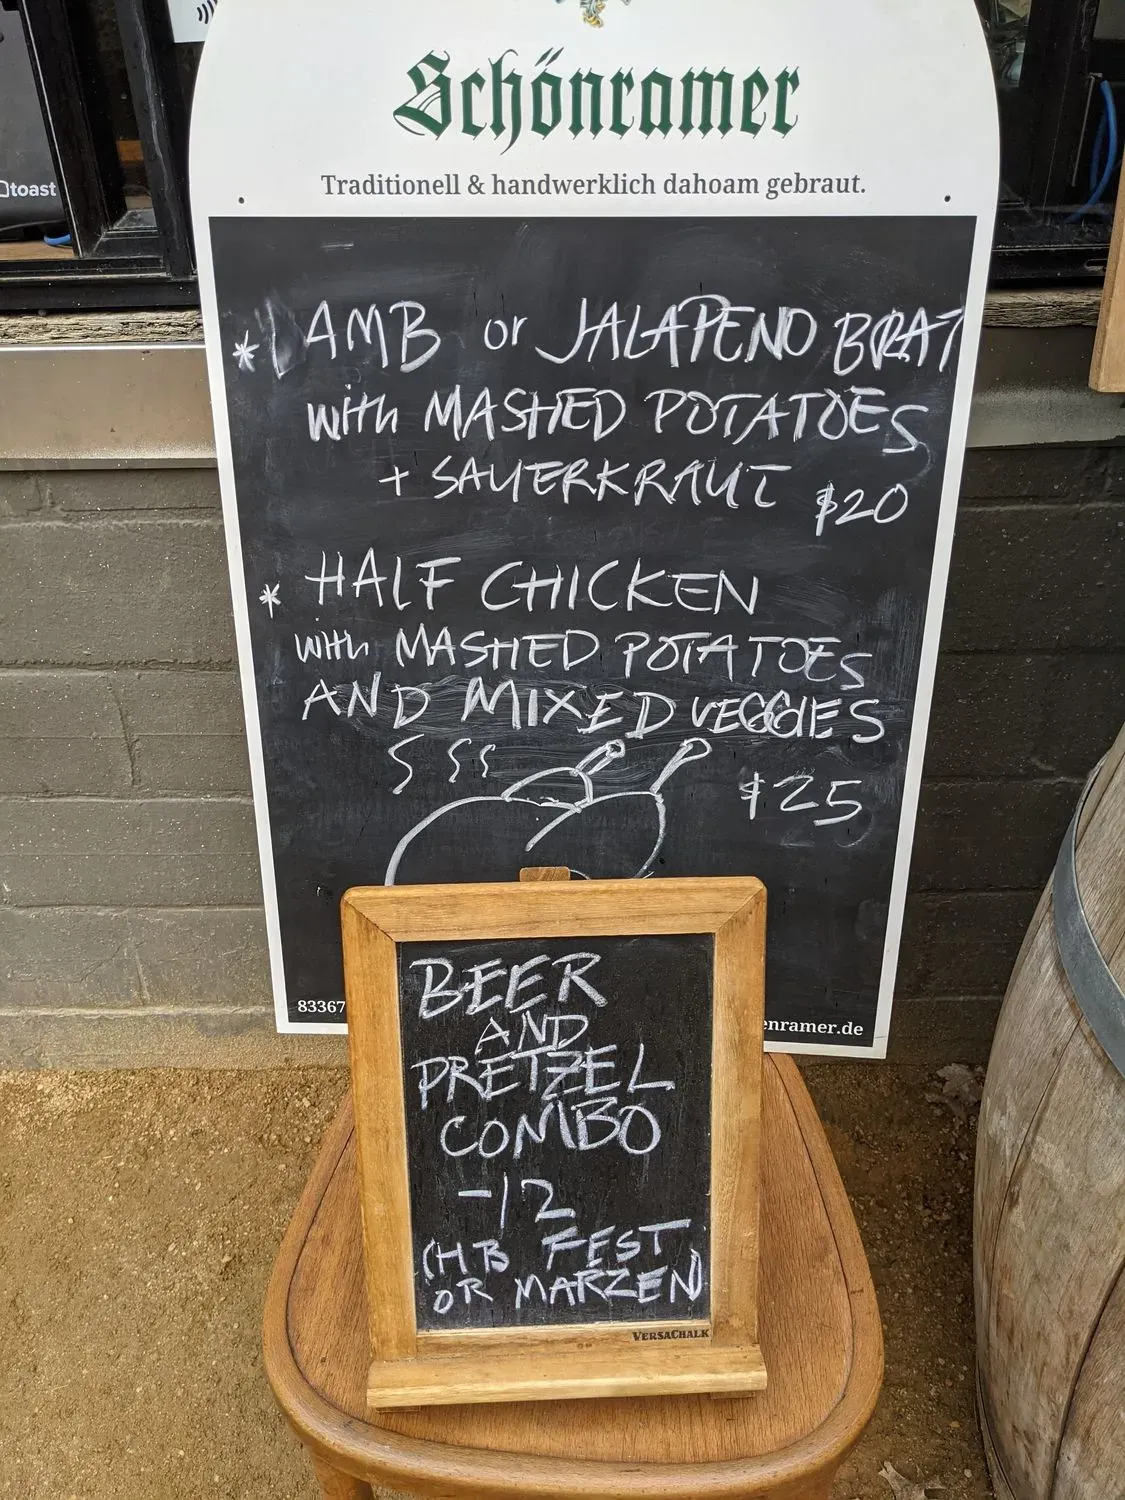 Schönramer
toast
Traditionell & handwerklich dahoam gebraut.
* LAMB or JALAPENO BRAT
with MASHED POTATOES
+ SAUERKRAUT $20
* HALF CHICKEN
with MASHED POTATOES
AND MIXED VEGGIES
$25
83367
enramer.de
BEER
AND
PRETZEL
COMBO
-12
(HB FEST
OR MARZEN)
VERSACHALK